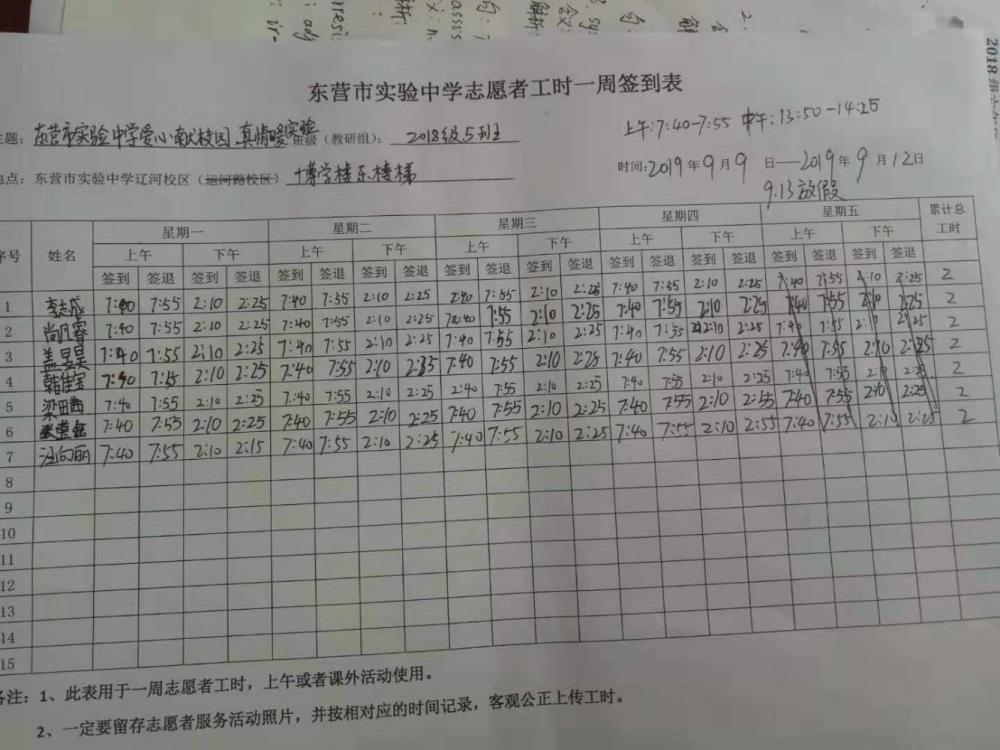 东营市实验中学志愿者工时一周签到表
主题：东营市实验中学爱心献校园，真情暖实验 班级（教研组）：2018级5班 上午：7:40-7:55 中午：13:50-14:25
地点：东营市实验中学辽河校区（运河路校区）博学楼东楼梯 时间：2019年9月9日—2019年9月12日
9.13放假
序号 姓名 星期一 星期二 星期三 星期四 星期五 累计总工时
上午 下午 上午 下午 上午 下午 上午 下午 上午 下午
签到 签退 签到 签退 签到 签退 签到 签退 签到 签退 签到 签退 签到 签退 签到 签退 签到 签退 签到 签退
1 7:40 7:55 2:10 2:25 7:40 7:55 2:10 2:25 7:40 7:55 2:10 2:25 7:40 7:55 2:10 2:25 7:40 7:55 2:10 2:25 2
2 7:40 7:55 2:10 2:25 7:40 7:55 2:10 2:25 7:40 7:55 2:10 2:25 7:40 7:55 2:10 2:25 7:40 7:55 2:10 2:25 2
3 盖昱昊 7:40 7:55 2:10 2:25 7:40 7:55 2:10 2:25 7:40 7:55 2:10 2:25 7:40 7:55 2:10 2:25 7:40 7:55 2:10 2:25 2
4 韩佳宝 7:40 7:55 2:10 2:25 7:40 7:55 2:10 2:25 7:40 7:55 2:10 2:25 7:40 7:55 2:10 2:25 7:40 7:55 2:10 2:25 2
5 梁田茜 7:40 7:55 2:10 2:25 7:40 7:55 2:10 2:25 2:40 7:55 2:10 2:25 7:40 7:55 2:10 2:25 7:40 7:55 2:10 2:25 2
6 7:40 7:55 2:10 2:25 7:40 7:55 2:10 2:25 7:40 7:55 2:10 2:25 7:40 7:55 2:10 2:55 7:40 7:55 2:10 2:25 2
7 汪向丽 7:40 7:55 2:10 2:15 7:40 7:55 2:10 2:25 7:40 7:55 2:10 2:25 7:40 7:55 2:10 2:55 7:40 7:55 2:10 2:25 2
8
9
10
11
12
13
14
15
备注：1、此表用于一周志愿者工时，上午或者课外活动使用。
2、一定要留存志愿者服务活动照片，并按相对应的时间记录，客观公正上传工时。